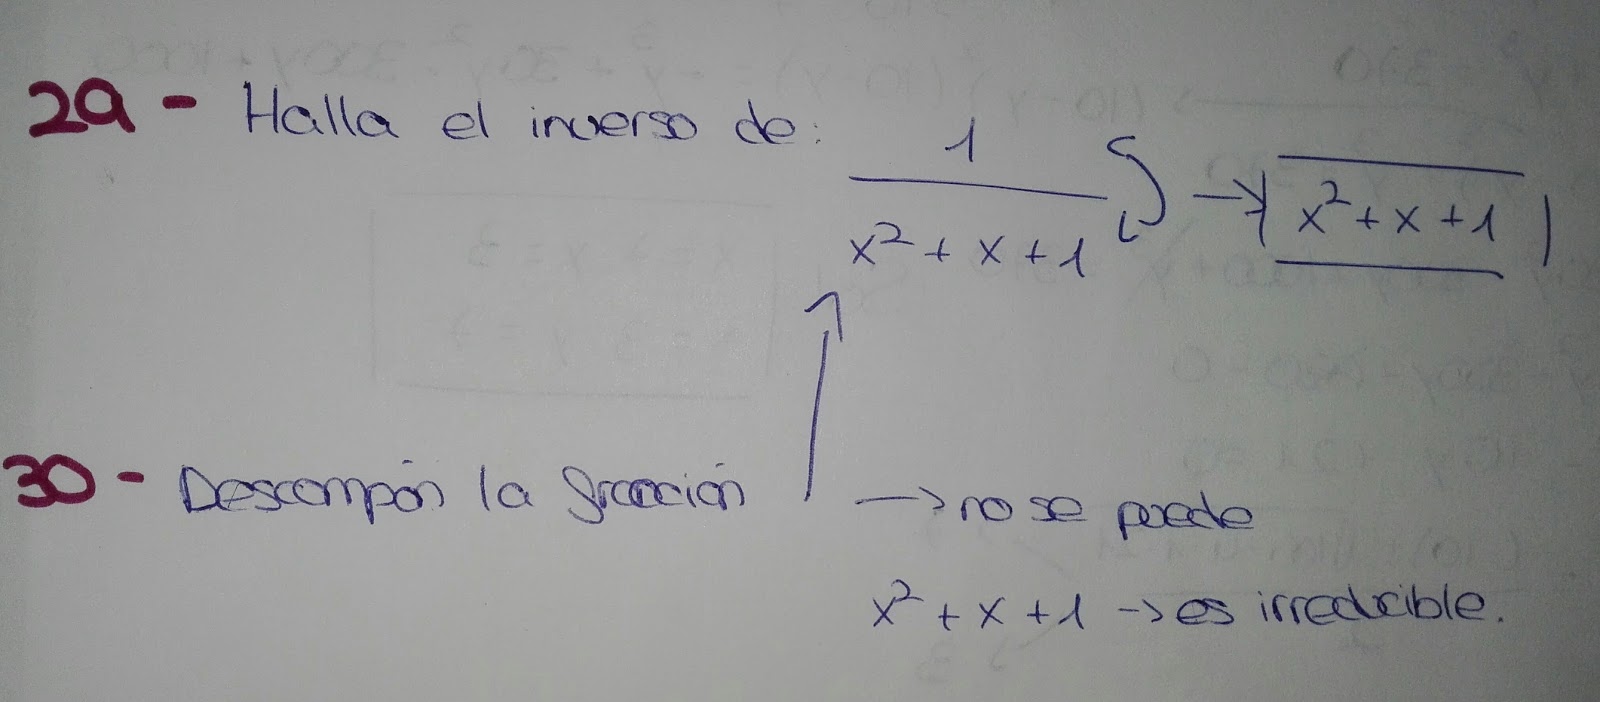 29 - Halla el inverso de: 1 / x² + x + 1 → x² + x + 1
30 - Descompón la fracción → no se puede
x² + x + 1 → es irreducible.